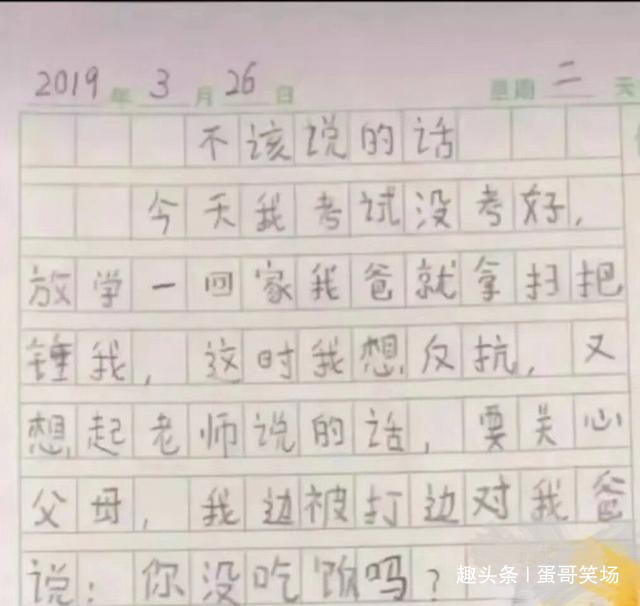 2019年3月26日 星期二 天
不该说的话
今天我考试没考好，
放学一回家我爸就拿扫把
锤我，这时我想反抗，又
想起老师说的话，要关心
父母，我边被打边对我爸
说：你没吃饭吗？
趣头条 | 蛋哥笑场